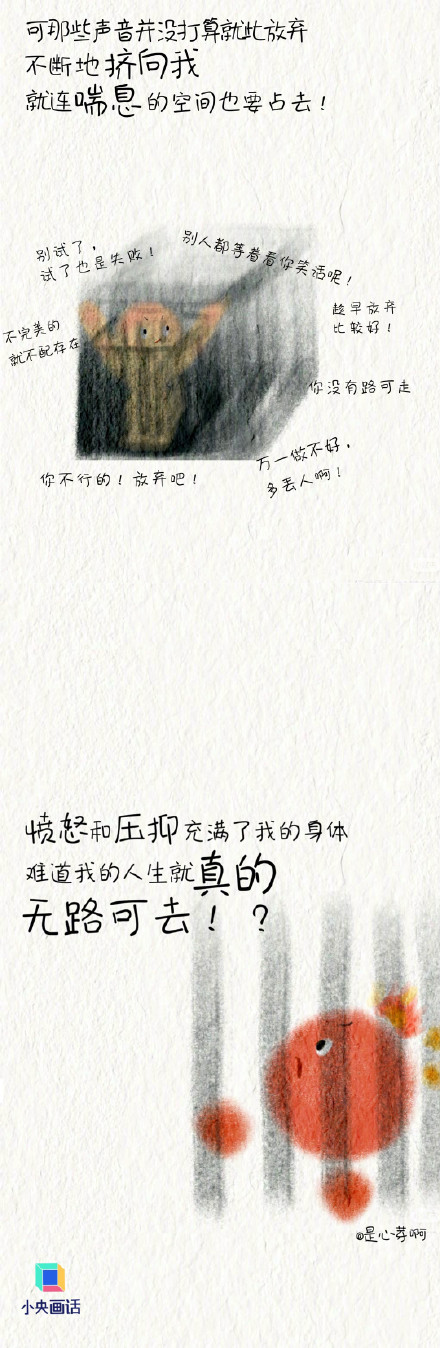 可那些声音并没打算就此放弃
不断地挤向我
就连喘息的空间也要占去！
别试了，
试了也是失败！
别人都等着看你笑话呢！
不完美的
就不配存在
趁早放弃
比较好！
你没有路可走
万一做不好，
多丢人啊！
你不行的！放弃吧！
愤怒和压抑充满了我的身体
难道我的人生就真的
无路可去！？
@是心荨啊
小央画话